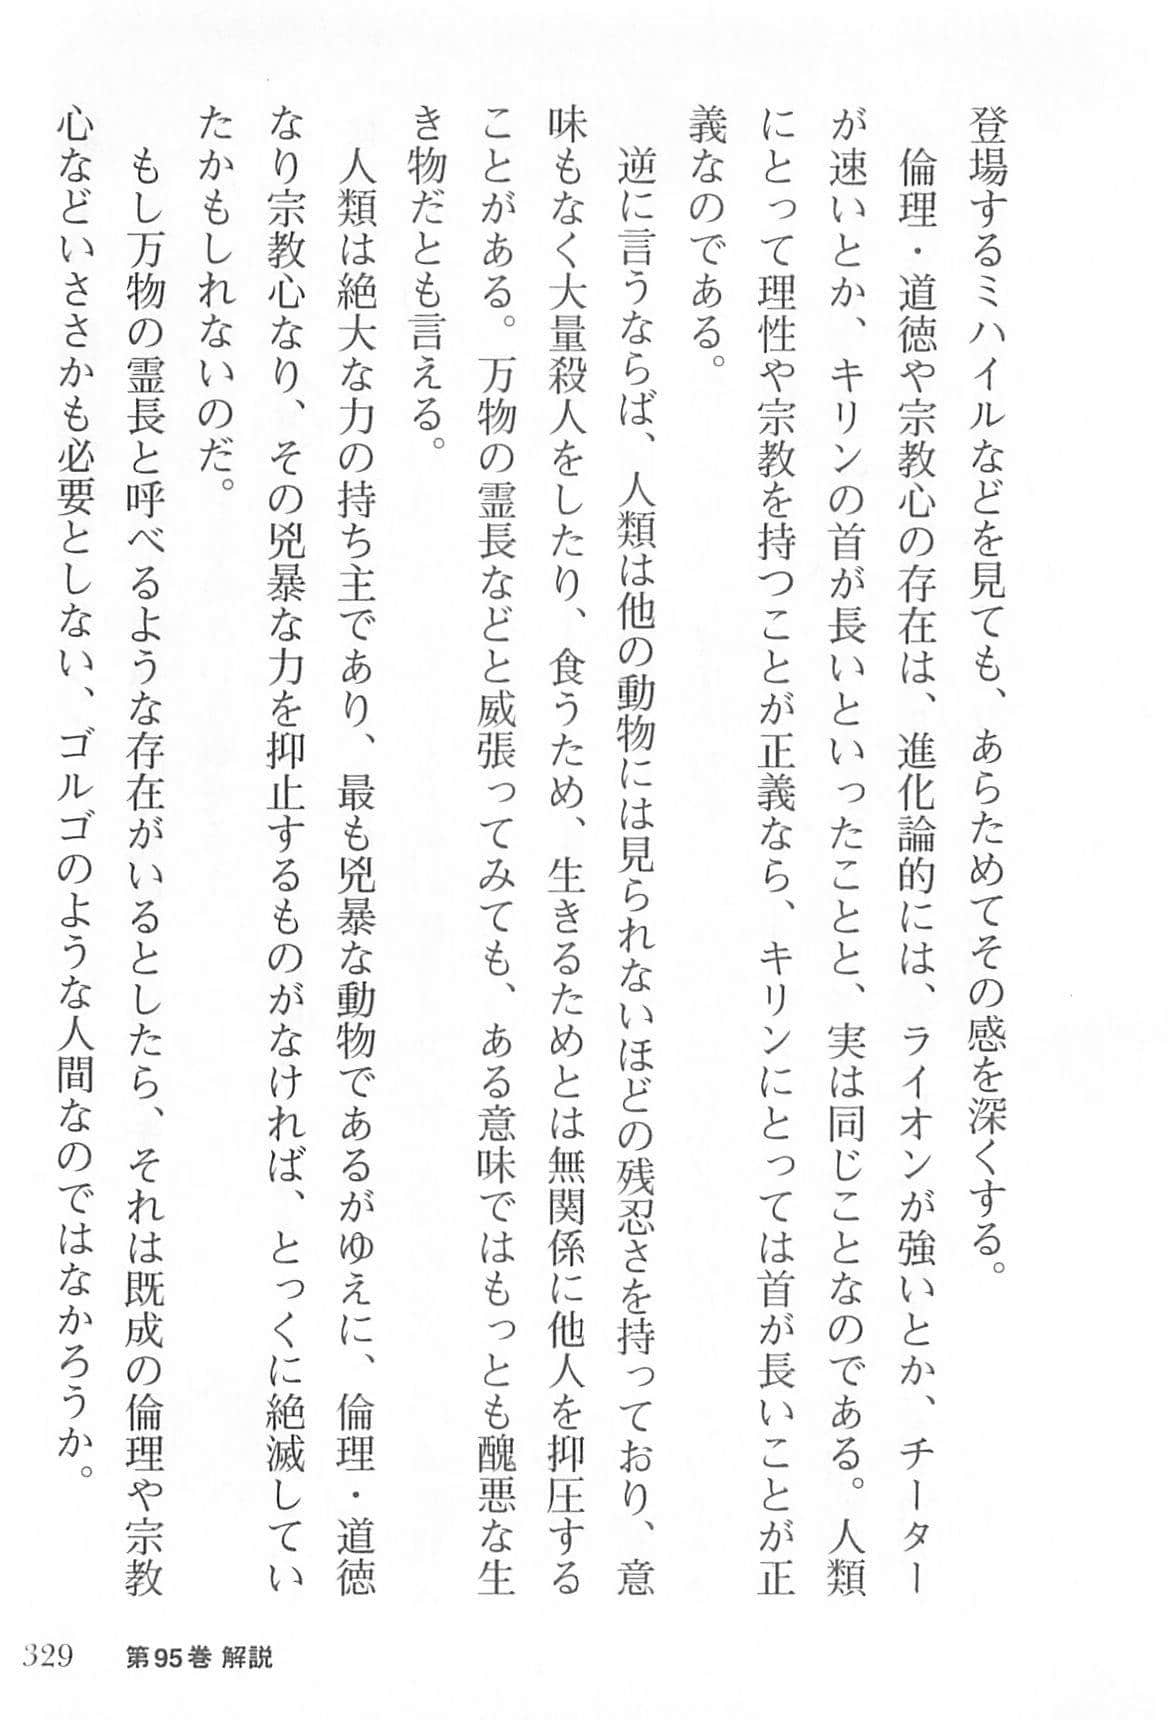 登場するミハイルなどを見ても、あらためてその感を深くする。
　倫理・道徳や宗教心の存在は、進化論的には、ライオンが強いとか、チーター
が速いとか、キリンの首が長いといったことと、実は同じことなのである。人類
にとって理性や宗教を持つことが正義なら、キリンにとっては首が長いことが正
義なのである。
　逆に言うならば、人類は他の動物には見られないほどの残忍さを持っており、意
味もなく大量殺人をしたり、食うため、生きるためとは無関係に他人を抑圧する
ことがある。万物の霊長などと威張ってみても、ある意味ではもっとも醜悪な生
き物だとも言える。
　人類は絶大な力の持ち主であり、最も兇暴な動物であるがゆえに、倫理・道徳
なり宗教心なり、その兇暴な力を抑止するものがなければ、とっくに絶滅してい
たかもしれないのだ。
　もし万物の霊長と呼べるような存在がいるとしたら、それは既成の倫理や宗教
心などいささかも必要としない、ゴルゴのような人間なのではなかろうか。
329　第95巻 解説